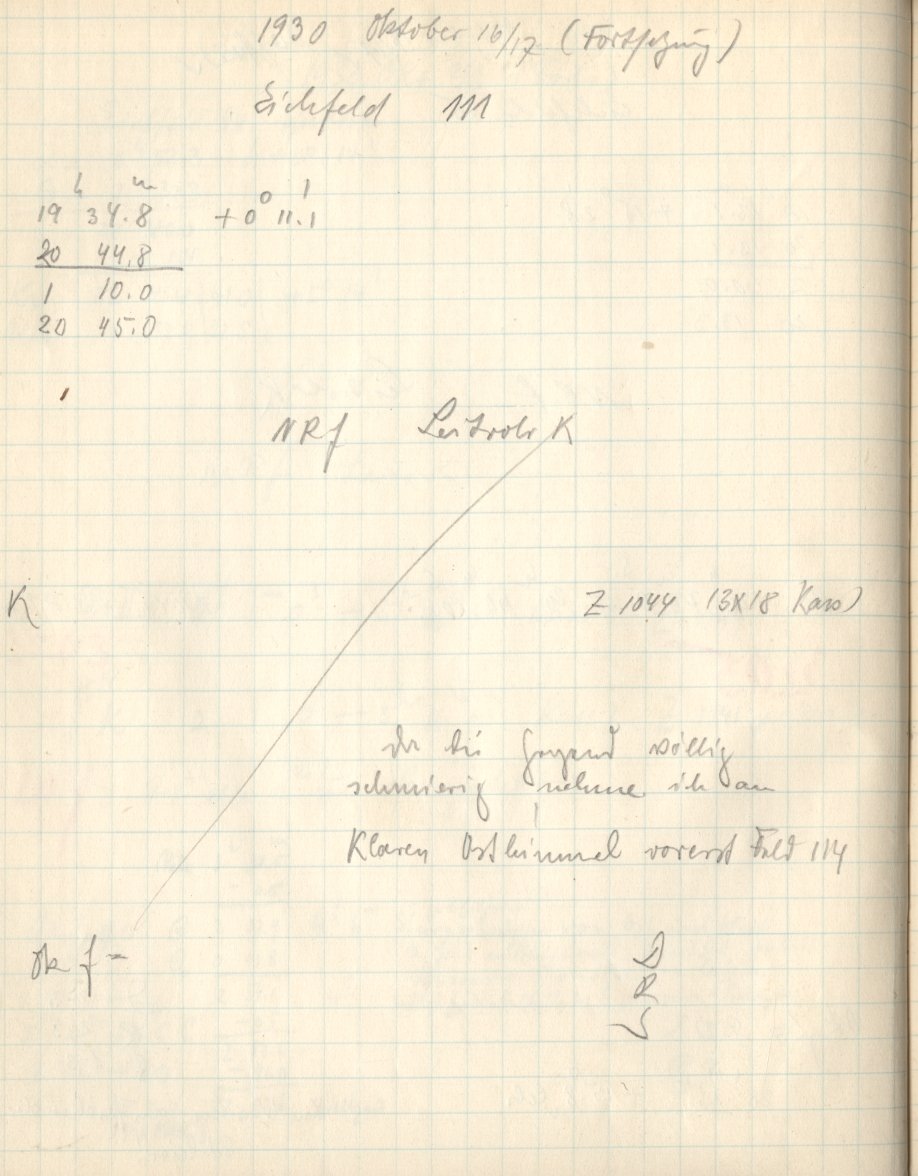 1930 Oktober 16/17 (Fortsetzung)
Eichfeld 111
h m
19 34.8 +0° 11.1'
20 44.8
1 10.0
20 45.0
NRf Leitrohr K
K Z 1044 13X18 Kaw)
Da die Gegend völlig
schmierig nehme ich am
Klaren Osthimmel vorerst Feld 114
Ok f =
D
R